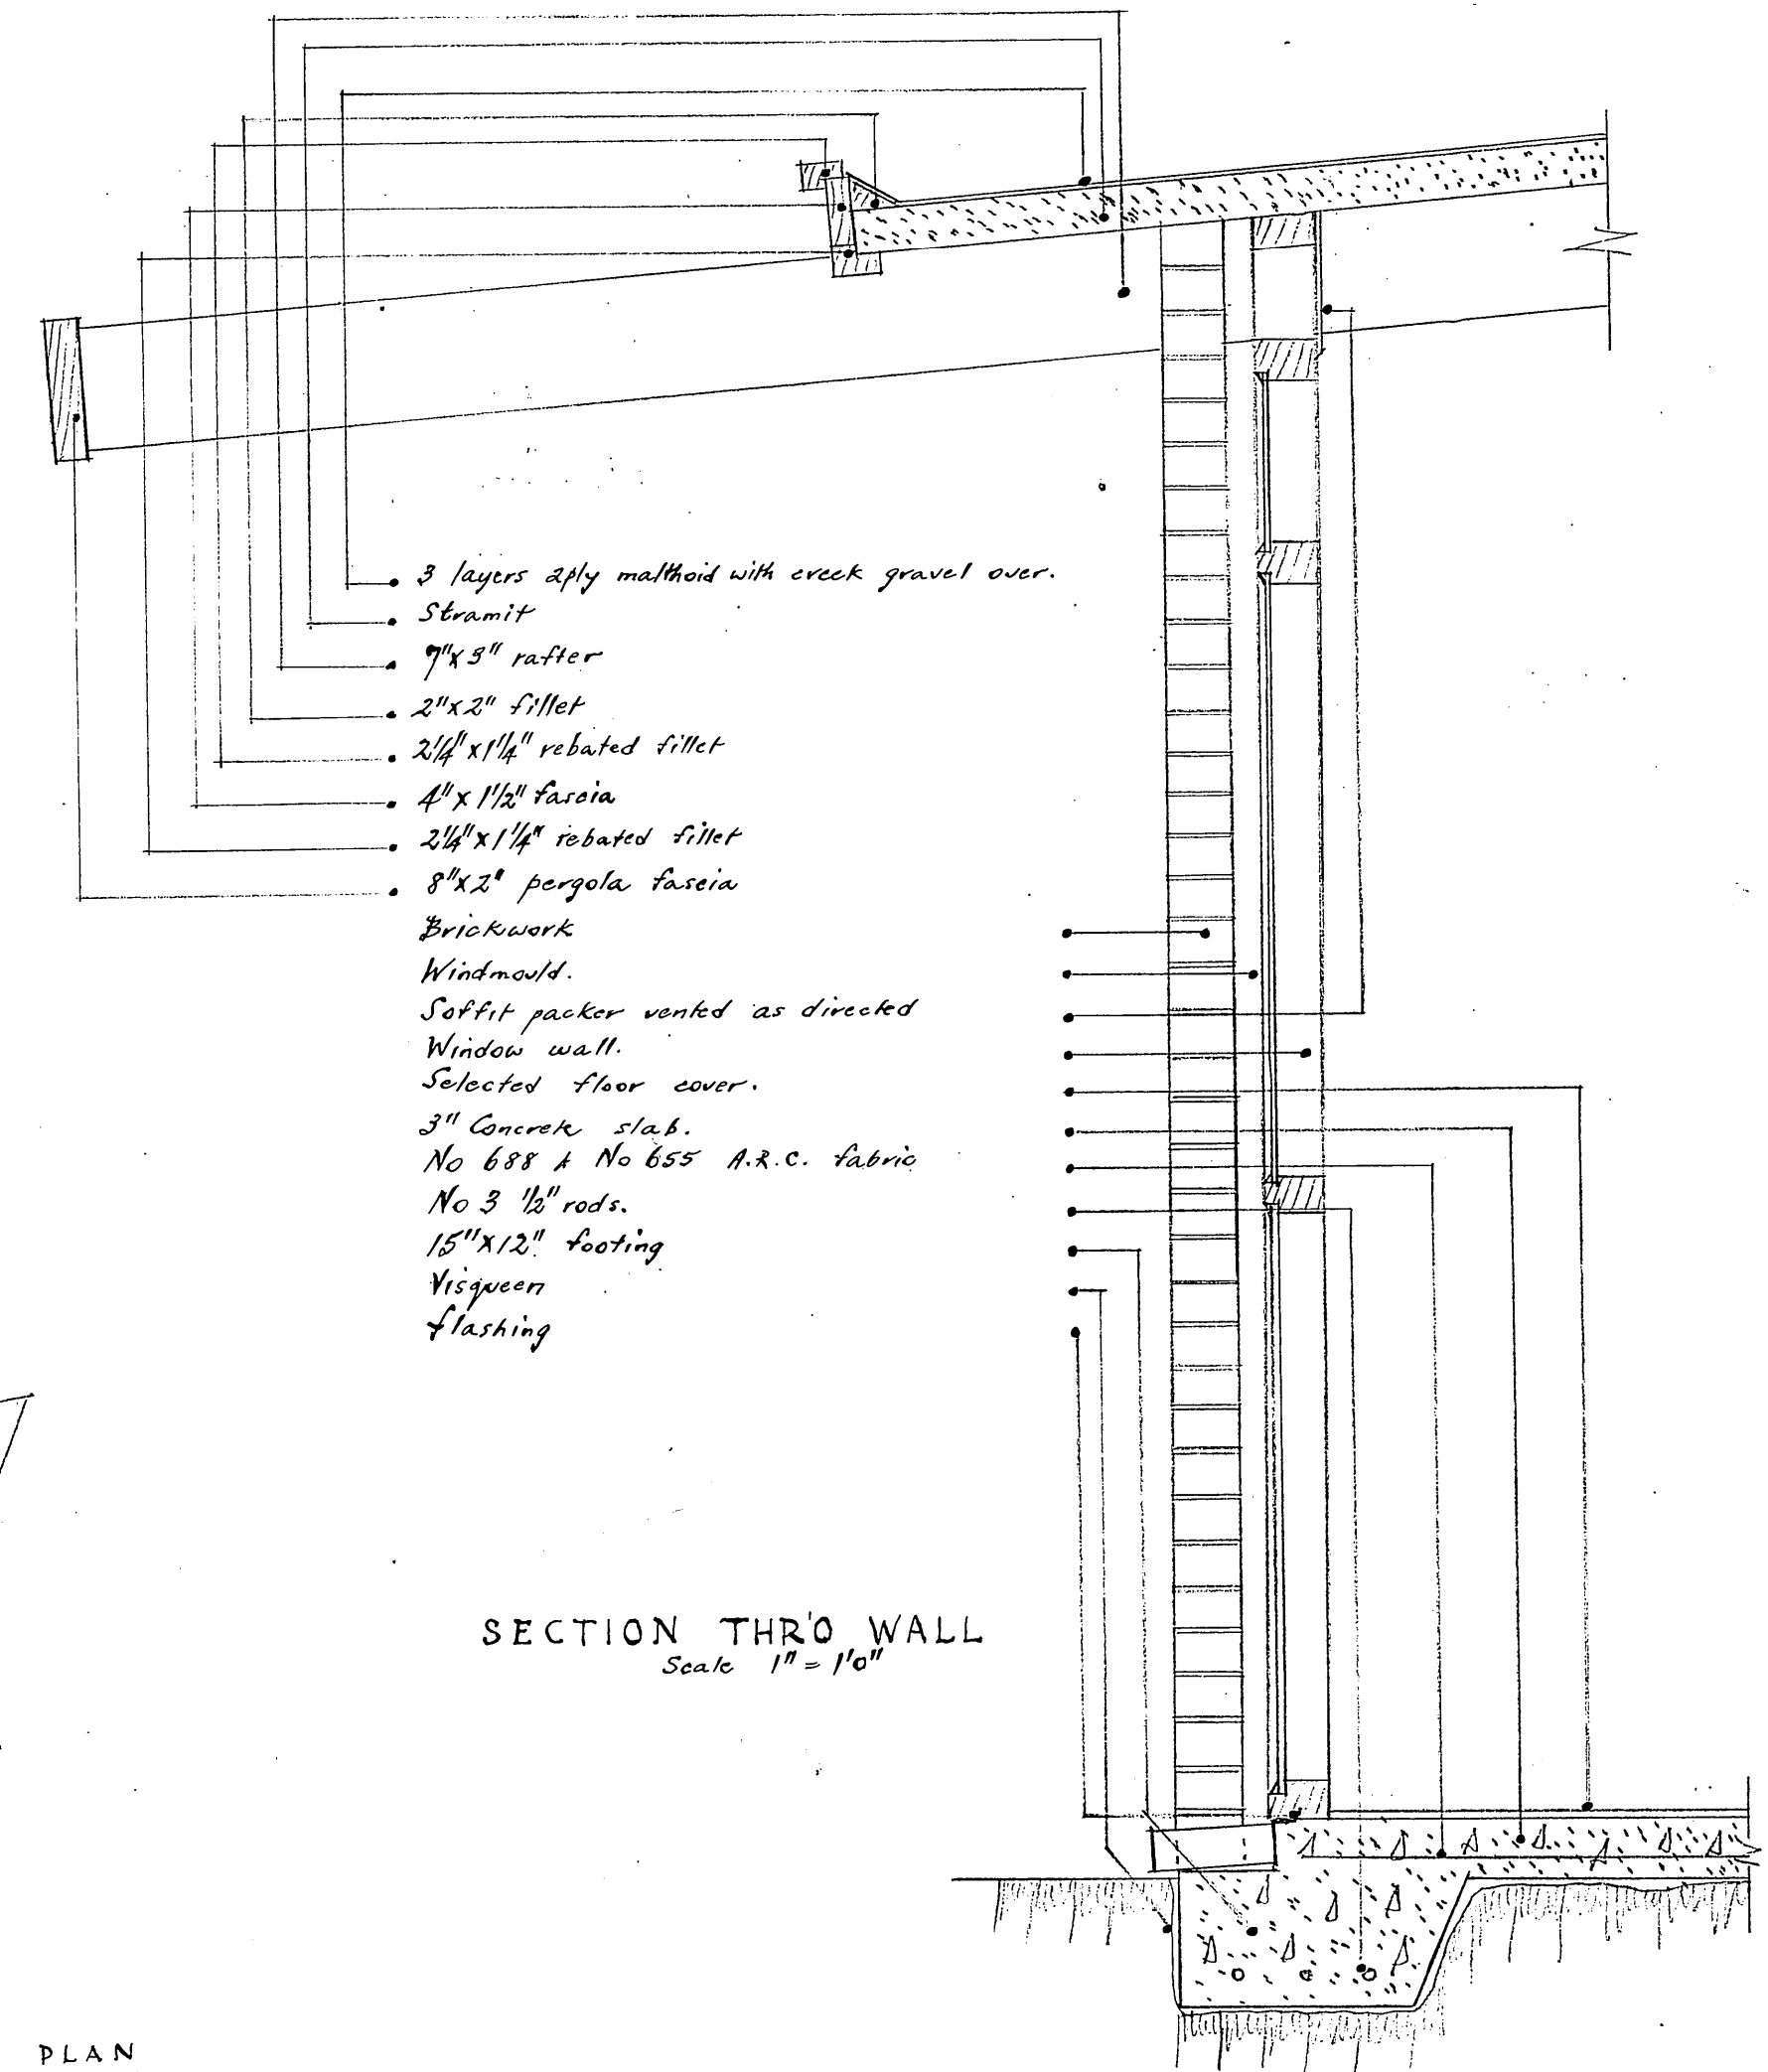 3 layers 2ply malthoid with creek gravel over.
Stramit
7"x3" rafter
2"x2" fillet
2¼"x1¼" rebated fillet
4"x1½" fascia
2¼"x1¼" rebated fillet
8"x2" pergola fascia
Brickwork
Windmould.
Soffit packer vented as directed
Window wall.
Selected floor cover.
3" Concrete slab.
No 688 & No 655 A.R.C. fabric
No 3 ½" rods.
15"x12" footing
Visqueen
flashing
SECTION THR'O WALL
Scale 1" = 1'0"
PLAN